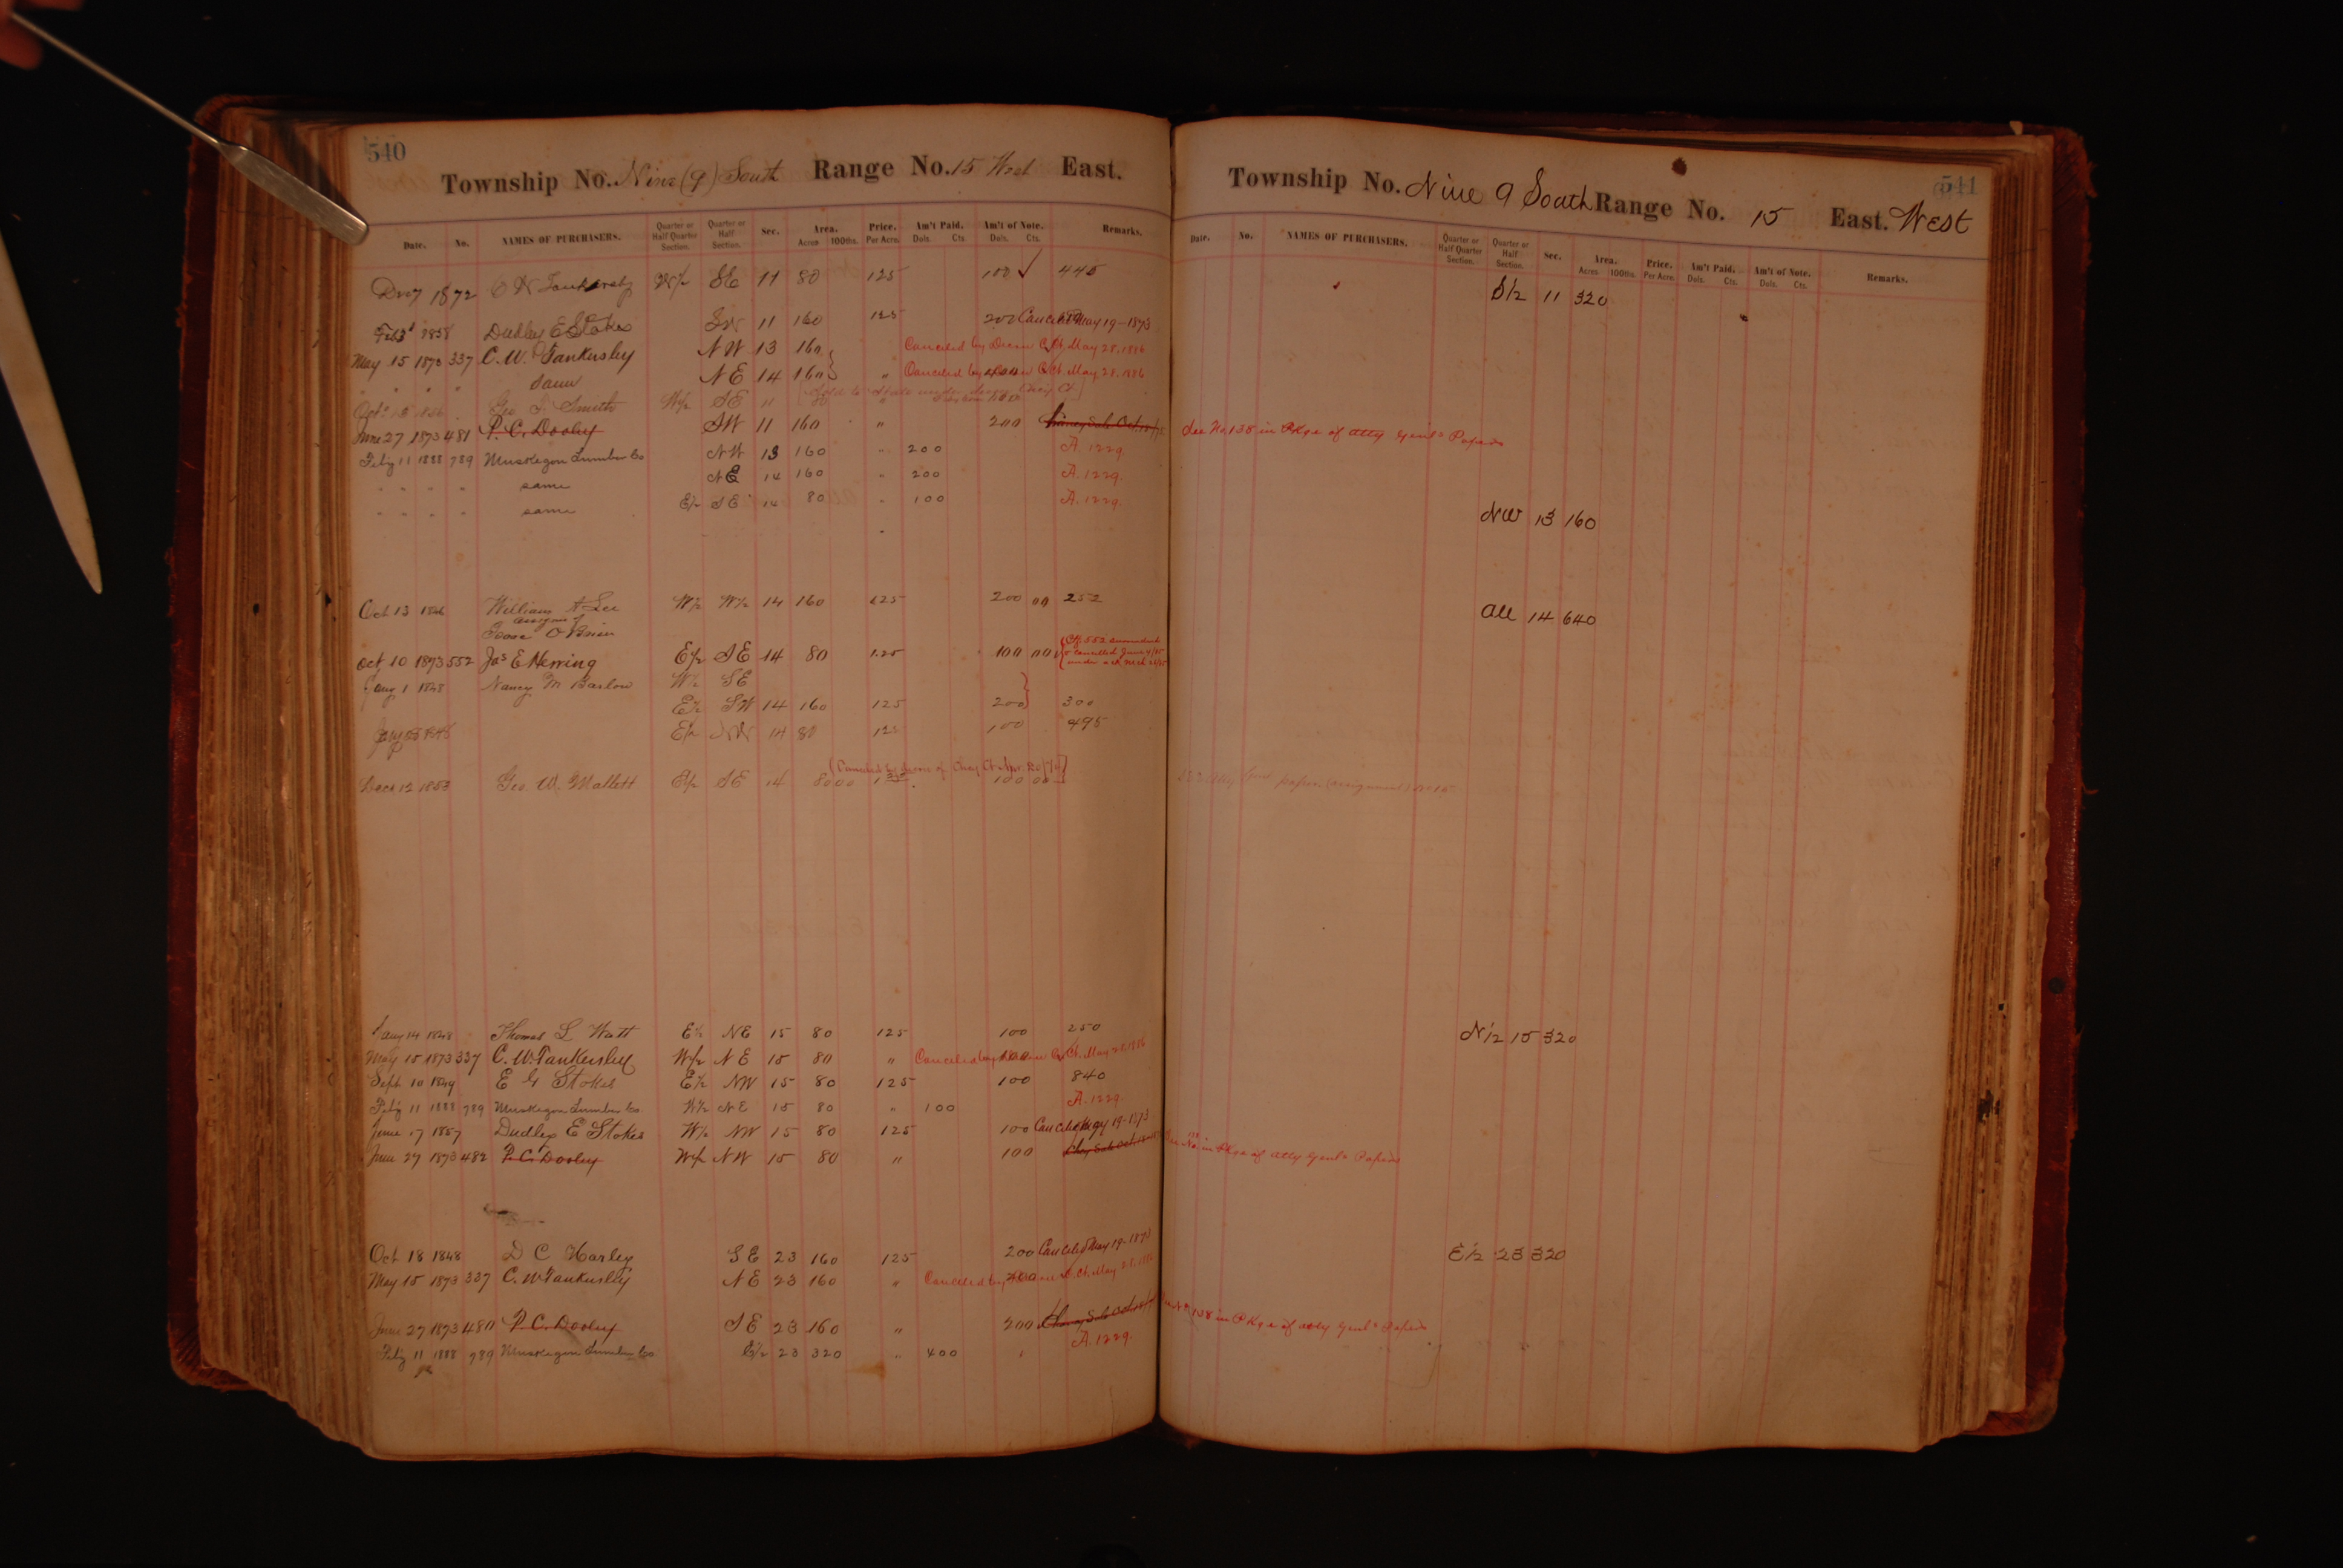 540
Township No. Nine (9) South Range No. 15 West East.
Date. No. NAMES OF PURCHASERS. Quarter or Half Quarter Section. Quarter or Half Section. Sec. Area. Acres 100ths. Price. Per Acre. Am't Paid. Dols. Cts Am't of Note. Dols. Cts. Remarks.
7 1872 W½ SE 11 80 125 100 ✓ 445
Dudley E Stokes SW 11 160 125 200 Canceled May 19-1873
May 15 1873 337 C. W. Tankersley NW 13 160 Canceled by Decree Ch. Ct. May 28, 1886
" " " " Same NE 14 160 " Canceled by Ct. May 28, 1886
Oct 1856 Geo. Smith W½ SE 11 80 "
June 27 1873 481 P. C. Dooley SW 11 160 " 200
Feb'y 11 1888 789 Muskegon Lumber Co NW 13 160 " 200 A. 1229
" " " " same NE 14 160 " 200 A. 1229.
" " " " same E½ SE 14 80 " 100 A. 1229.
Oct 13 1846 William A Lee W½ W½ 14 160 125 200 00 252
assignee of
Isaac O Brien
Oct 10 1873 552 Jas E Herring E½ SE 14 80 1.25 100 00 Ctf. 552 surrendered
& cancelled June 4/75
under act
Jany 1 1848 Nancy M Barlow W½ SE
E½ SW 14 160 125 200 300
E½ NW 14 80 125 100 495
(Canceled by decree of Chcy Ct Apr. 20
Decr 12 1853 Geo. W. Mallett E½ SE 14 80 00 1 25 100 00
Jany 14 1848 Thomas L Watt E½ NE 15 80 125 100 250
May 15 1873 337 C. W. Tankersley W½ NE 15 80 " Canceled by Ct. May 28, 1886
Sept 10 1849 E G Stokes E½ NW 15 80 125 100 840
Feb'y 11 1888 789 Muskegon Lumber Co. W½ NE 15 80 " 100 A. 1229.
June 17 1857 Dudley E Stokes W½ NW 15 80 125 100 Canceled May 19-1873
June 27 1873 482 P. C. Dooley W½ NW 15 80 " 100 Chcy Sale Oct.
Oct 18 1848 D C Harley SE 23 160 125 200 Canceled May 19-1873
May 15 1873 337 C. W Tankersley NE 23 160 " Canceled by Ct. May 28, 1886
June 27 1873 480 P. C. Dooley SE 23 160 " 200
Feb'y 11 1888 789 Muskegon Lumber Co E½ 23 320 " 400 A. 1229.
541
Township No. Nine 9 South Range No. 15 East. West
Date. No. NAMES OF PURCHASERS. Quarter or Half Quarter Section. Quarter or Half Section. Sec. Area. Acres. 100ths. Price. Per Acre. Am't Paid. Dols. Cts. Am't of Note. Dols. Cts. Remarks.
S½ 11 320
See No. 138 in Pkge of Atty Genl's Papers
NW 13 160
All 14 640
papers (assignment)
N½ 15 320
See No. 138 in Pkge of Atty Genl's Papers
E½ 23 320
138 in Pkge of Atty Genl's Papers